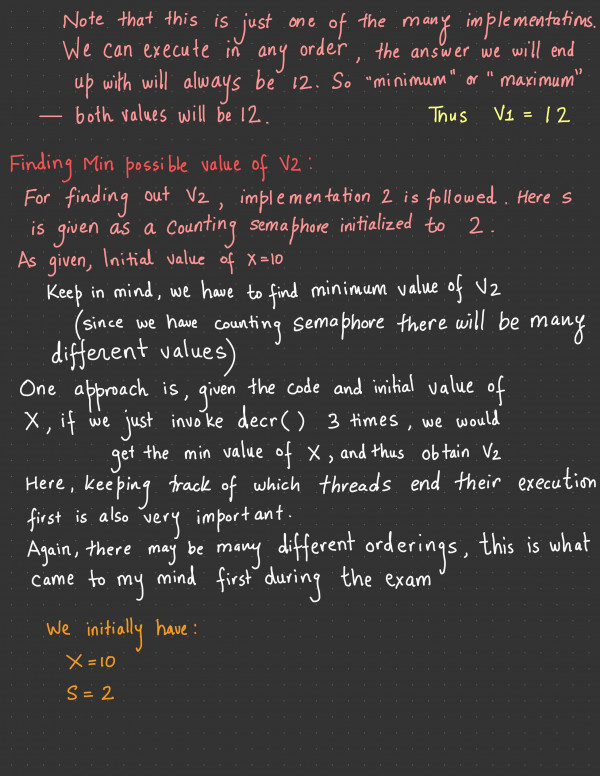 Note that this is just one of the many implementations.
We can execute in any order, the answer we will end
up with will always be 12. So "minimum" or "maximum"
— both values will be 12. Thus V1 = 12
Finding Min possible value of V2:
For finding out V2, implementation 2 is followed. Here s
is given as a Counting semaphore initialized to 2.
As given, Initial value of X=10
Keep in mind, we have to find minimum value of V2
(since we have counting semaphore there will be many
different values)
One approach is, given the code and initial value of
X, if we just invoke decr() 3 times, we would
get the min value of X, and thus obtain V2
Here, keeping track of which threads end their execution
first is also very important.
Again, there may be many different orderings, this is what
came to my mind first during the exam
We initially have:
X=10
S=2